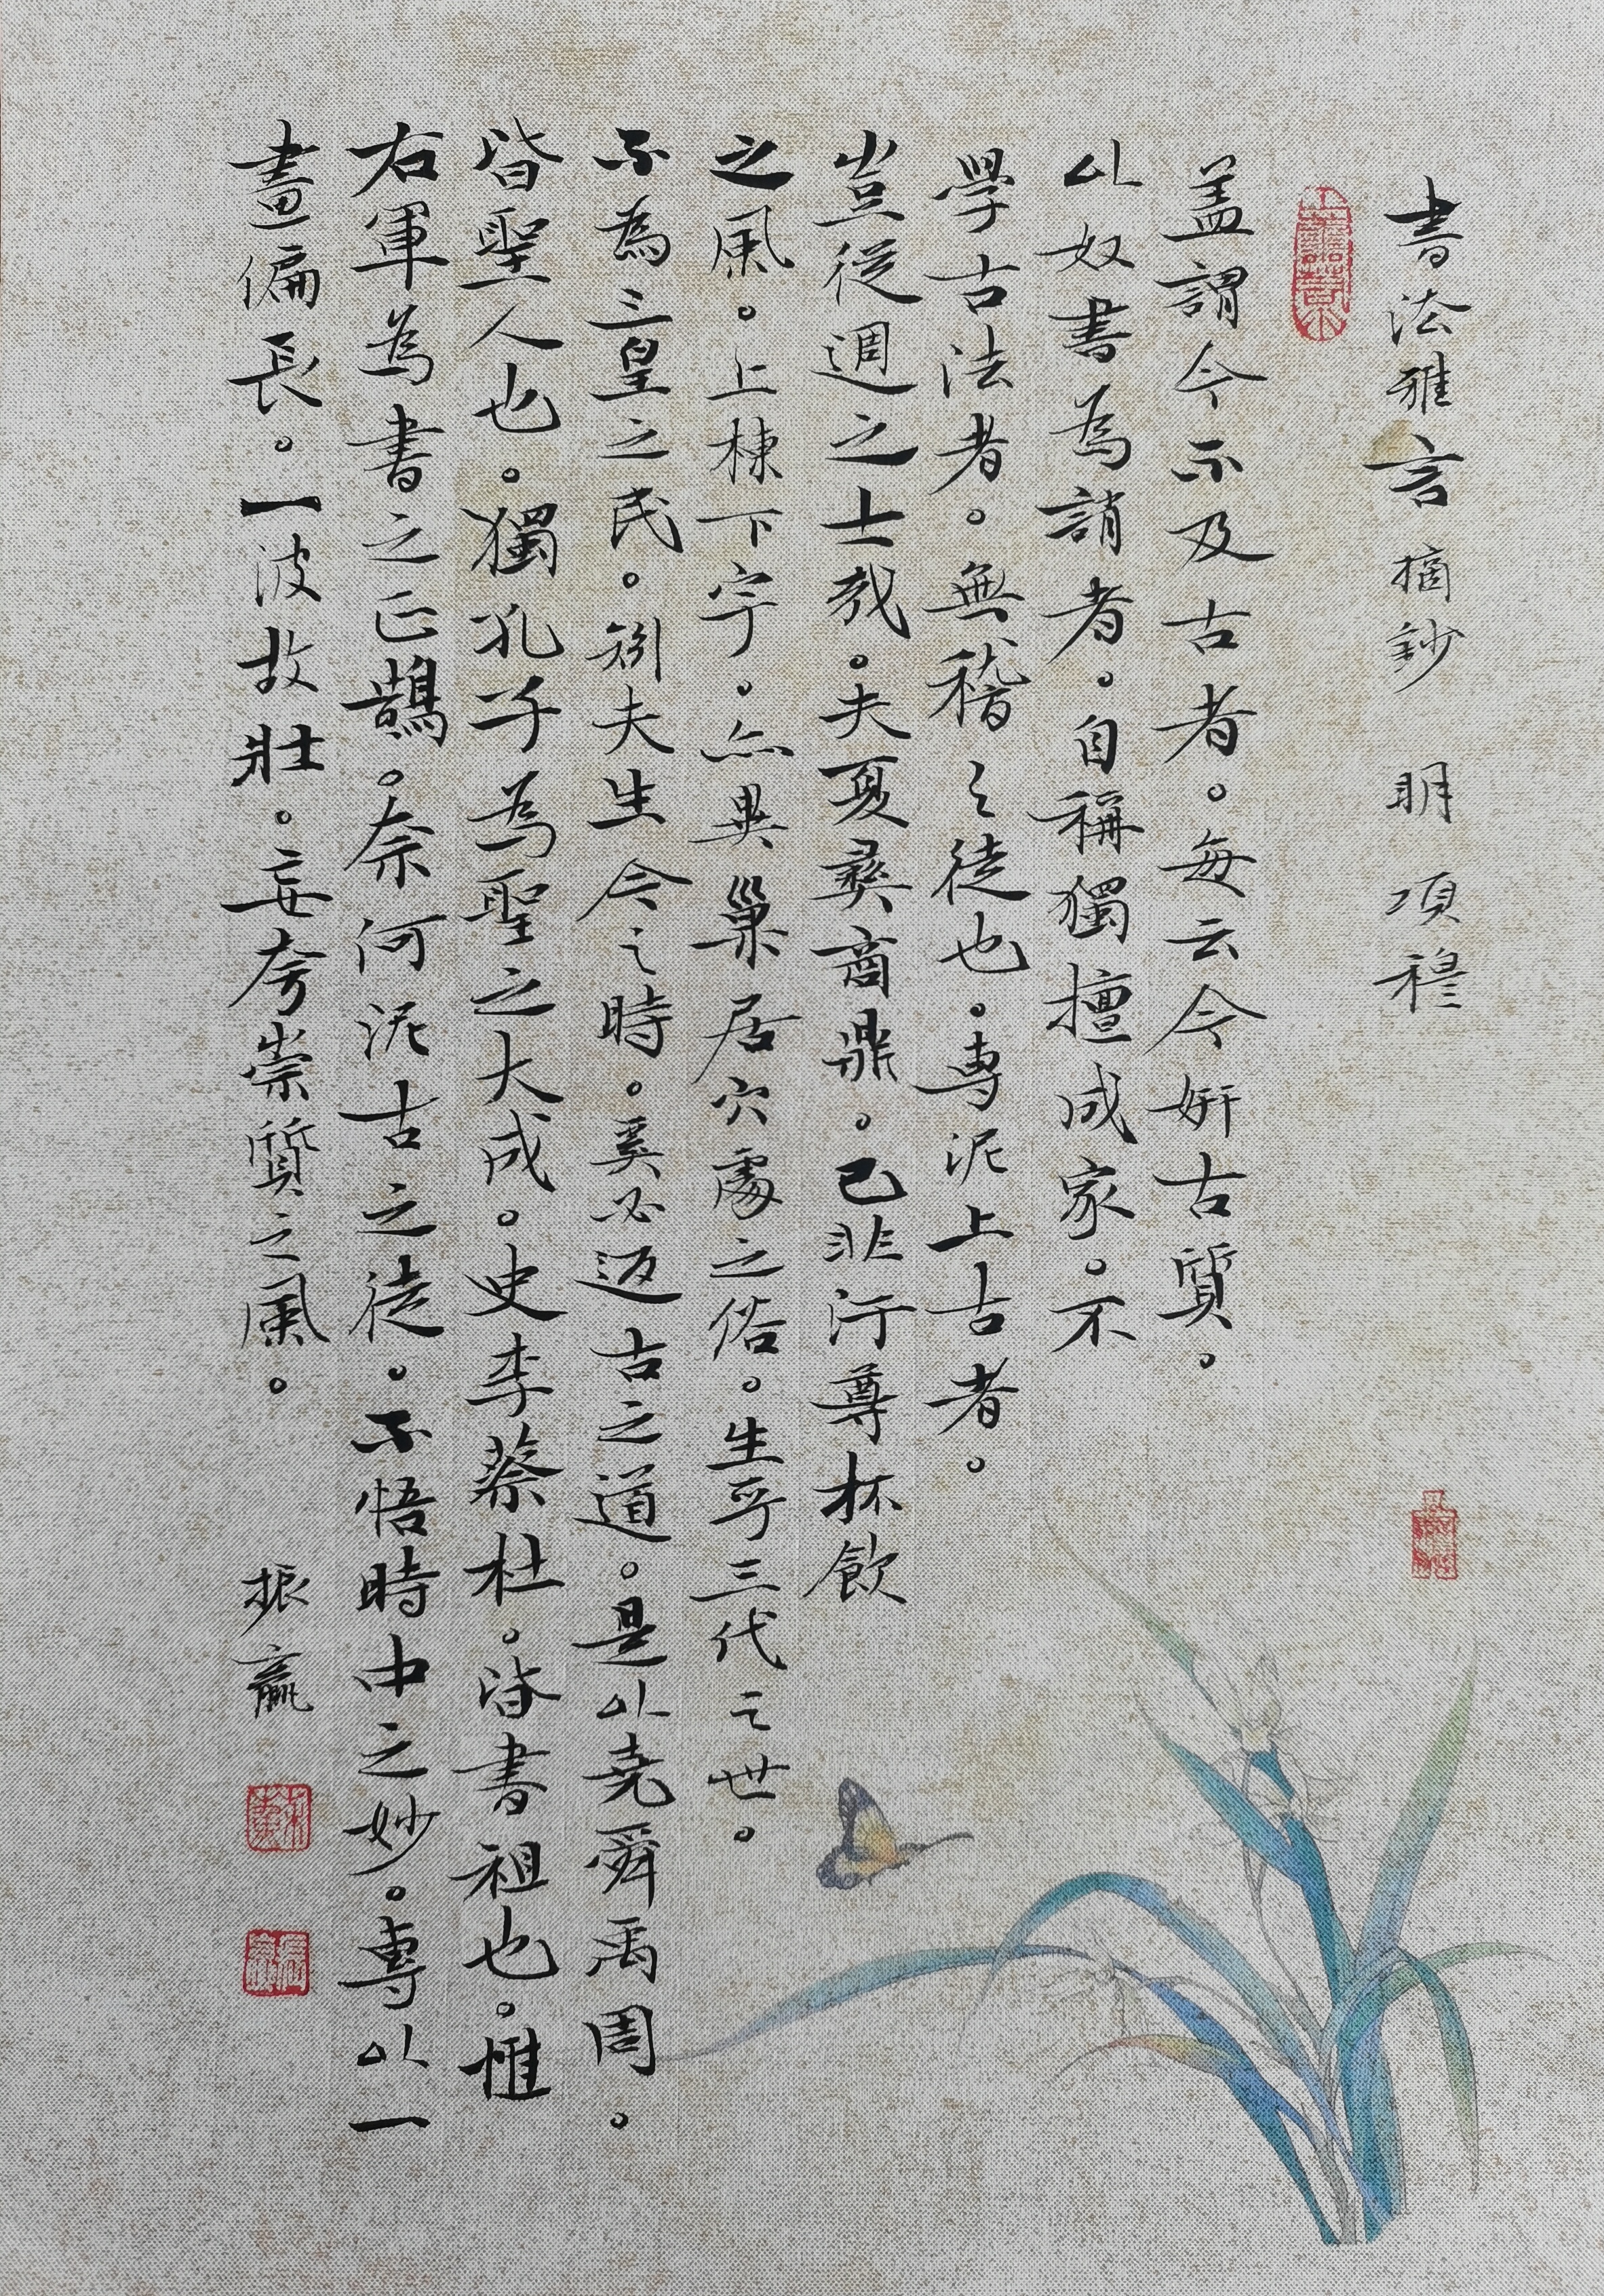 書法雅言 摘鈔 明 項穆
盖謂今不及古者。每云今妍古質。
以奴書為誚者。自稱獨擅成家。不
學古法者。無稽之徒也。專泥上古者。
豈從週之士哉。夫夏彝商鼎。已非汙尊杯飲
之風。上棟下宇。亦異巢居穴處之俗。生乎三代之世。
不為三皇之民。矧夫生今之時。奚必返古之道。是以堯舜禹周。
皆聖人也。獨孔子為聖之大成。史李蔡杜。皆書祖也。惟
右軍為書之正鵠。奈何泥古之徒。不悟時中之妙。專以一
畫偏長。一波故壯。妄夸崇質之風。
振嬴